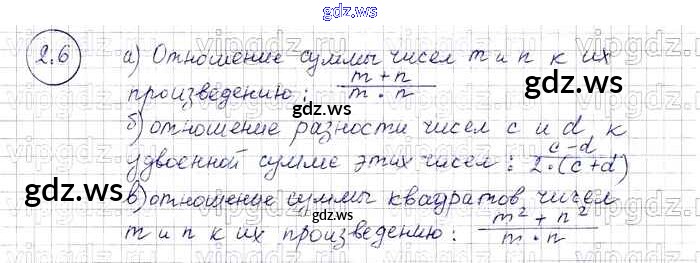 gdz.ws
2.6 а) Отношение суммы чисел m и n к их
произведению: m + n / m · n
б) отношение разности чисел c и d к
удвоенной сумме этих чисел: c - d / 2 · (c + d)
в) отношение суммы квадратов чисел
m и n к их произведению: m² + n² / m · n
gdz.ws
gdz.ws
gdz.ws
gdz.ws
gdz.ws